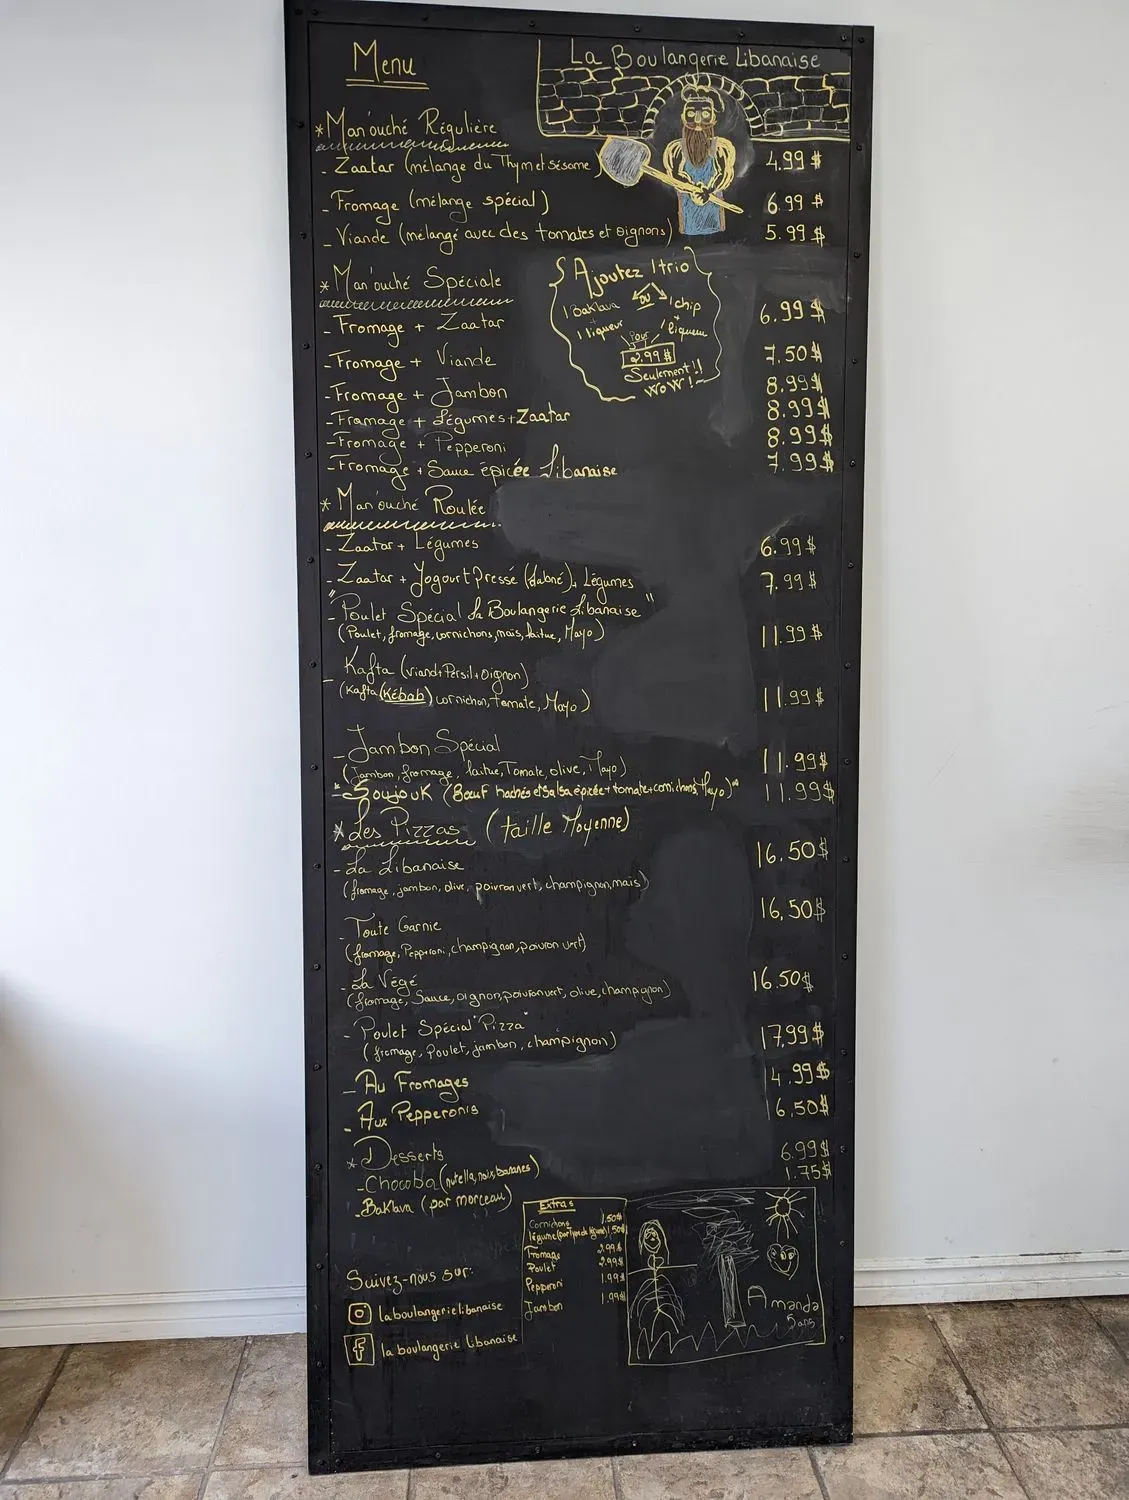 Menu
La Boulangerie Libanaise
*Man'ouché Régulière
- Zaatar (mélange du Thym et Sésame) 4.99 $
- Fromage (mélange spécial) 6.99 $
- Viande (mélangé avec des tomates et oignons) 5.99 $
* Man'ouché Spéciale
- Fromage + Zaatar 6.99 $
- Fromage + Viande 7.50 $
- Fromage + Jambon 8.99 $
- Fromage + Légumes + Zaatar 8.99 $
- Fromage + Pepperoni 8.99 $
- Fromage + Sauce épicée Libanaise 7.99 $
Ajoutez 1 trio
1 Baklava ou 1 chip
+ +
1 liqueur 1 liqueur
Pour
2.99 $
Seulement!!
WOW!
* Man'ouché Roulée
- Zaatar + Légumes 6.99 $
- Zaatar + Yogourt Pressé (Labné) + Légumes 7.99 $
- "Poulet Spécial La Boulangerie Libanaise"
(Poulet, fromage, cornichons, maïs, laitue, Mayo) 11.99 $
- Kafta (viand+Persil+Oignon)
(Kafta (Kébab) cornichon, tomate, Mayo) 11.99 $
- Jambon Spécial
(Jambon, fromage, laitue, Tomate, olive, Mayo) 11.99 $
*- Soujouk (Bœuf hachés et Salsa épicée+tomate+cornichons, Mayo)* 11.99 $
* Les Pizzas (taille Moyenne)
- La Libanaise 16.50 $
(fromage, jambon, olive, poivron vert, champignon, maïs)
- Toute Garnie 16,50 $
(fromage, Pepperoni, champignon, poivron vert)
- La Végé 16.50 $
(fromage, Sauce, oignon, poivron vert, olive, champignon)
- Poulet Spécial "Pizza" 17,99 $
(fromage, Poulet, jambon, champignon)
- Au Fromages 14.99 $
- Aux Pepperonis 16,50 $
* Desserts
- Chocoba (nutella, noix, bananes) 6.99 $
- Baklava (par morceau) 1.75 $
Extras
Cornichons 1.50 $
légume 1.50 $
Fromage 2.99 $
Poulet 2.99 $
Pepperoni 1.99 $
Jambon 1.99 $
Suivez-nous sur:
laboulangerielibanaise
f la boulangerie libanaise
Amanda
5 ans